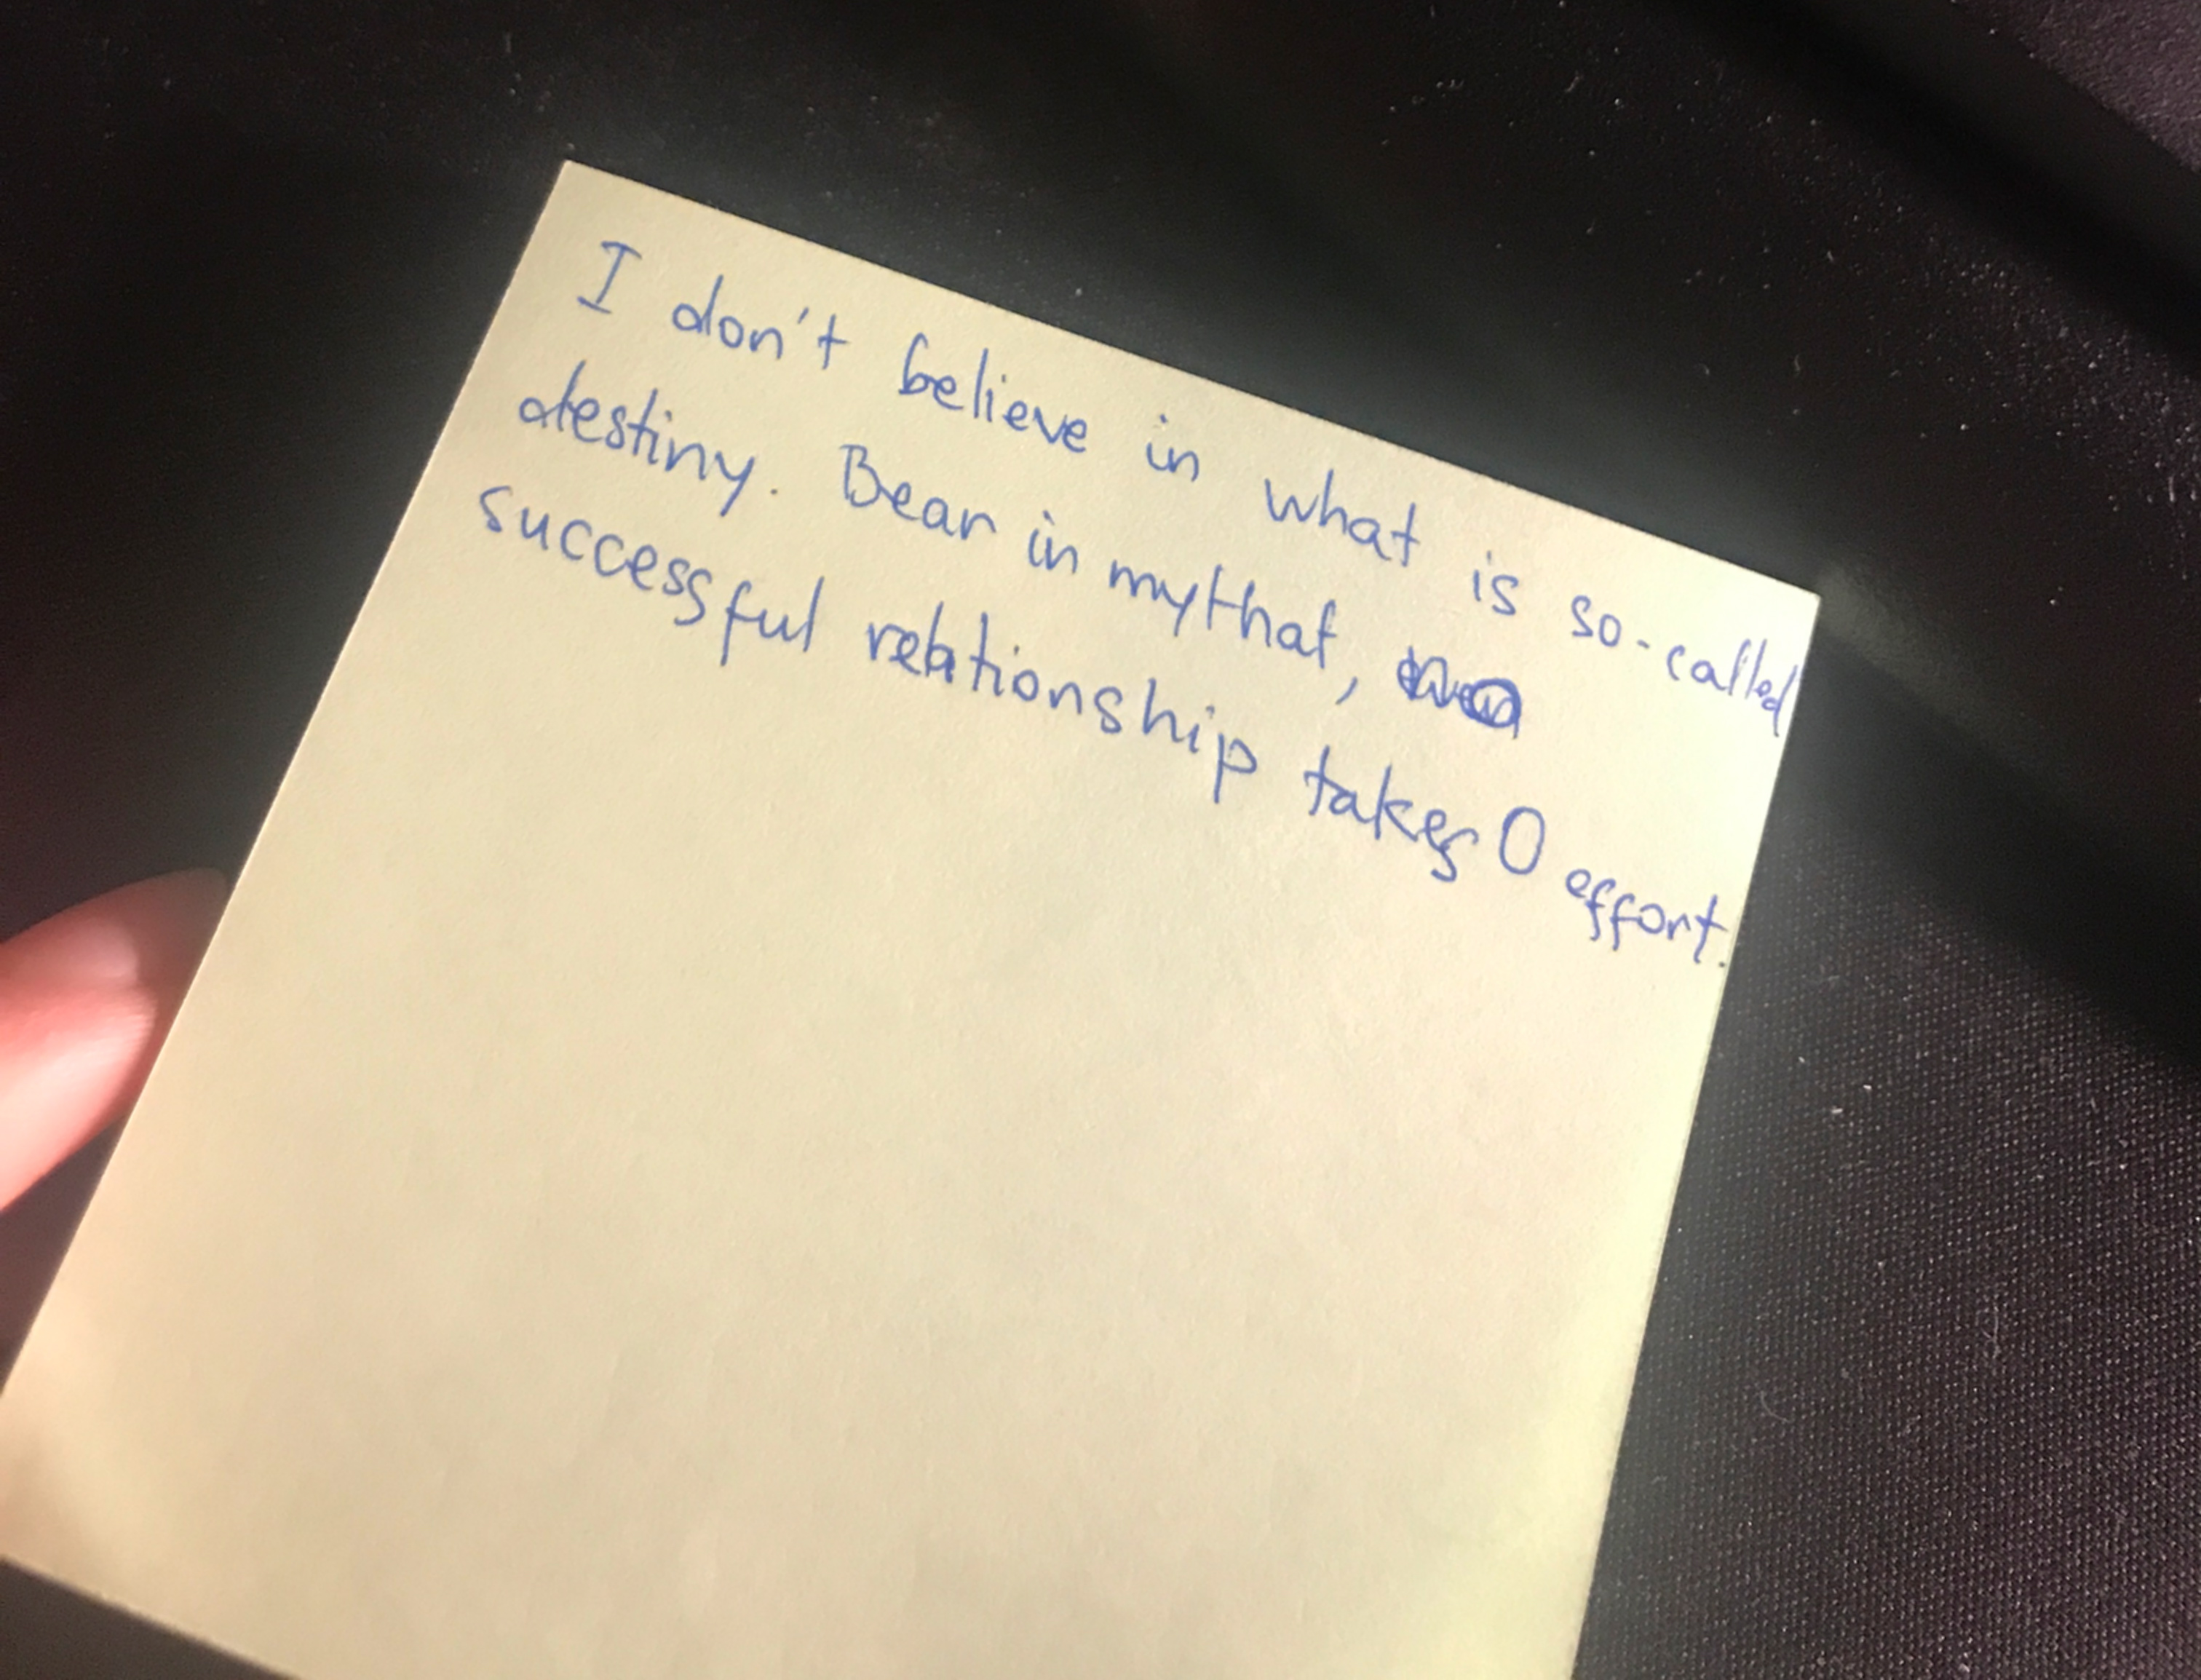 I don't believe in what is so-called
destiny. Bear in mythat,
successful relationship takes 0 effort.